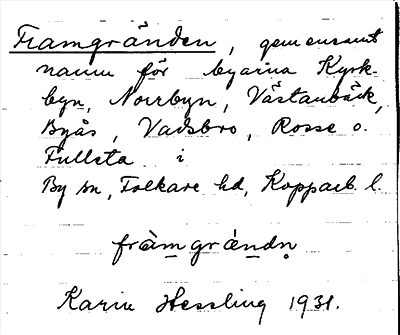 Framgränden, gemensamt
namn för byarna Kyrk-
byn, Norrbyn, Västanbäck,
Byås, Vadsbro, Rosse o.
Fullsta i
By sn, Folkare hd, Kopparb. l.
fràmgrándn̥
Karin Hessling 1931.